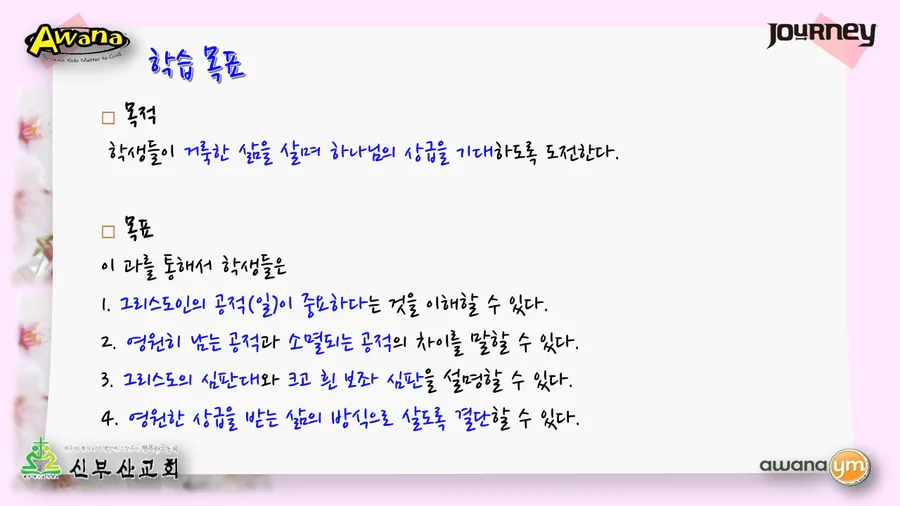 Awana
JOURNEY
학습 목표
목적
학생들이 거룩한 삶을 살며 하나님의 상급을 기대하도록 도전한다.
목표
이 과를 통해서 학생들은
1. 그리스도인의 공적(일)이 중요하다는 것을 이해할 수 있다.
2. 영원히 남는 공적과 소멸되는 공적의 차이를 말할 수 있다.
3. 그리스도의 심판대와 크고 흰 보좌 심판을 설명할 수 있다.
4. 영원한 상급을 받는 삶의 방식으로 살도록 결단할 수 있다.
신부산교회
awana ym